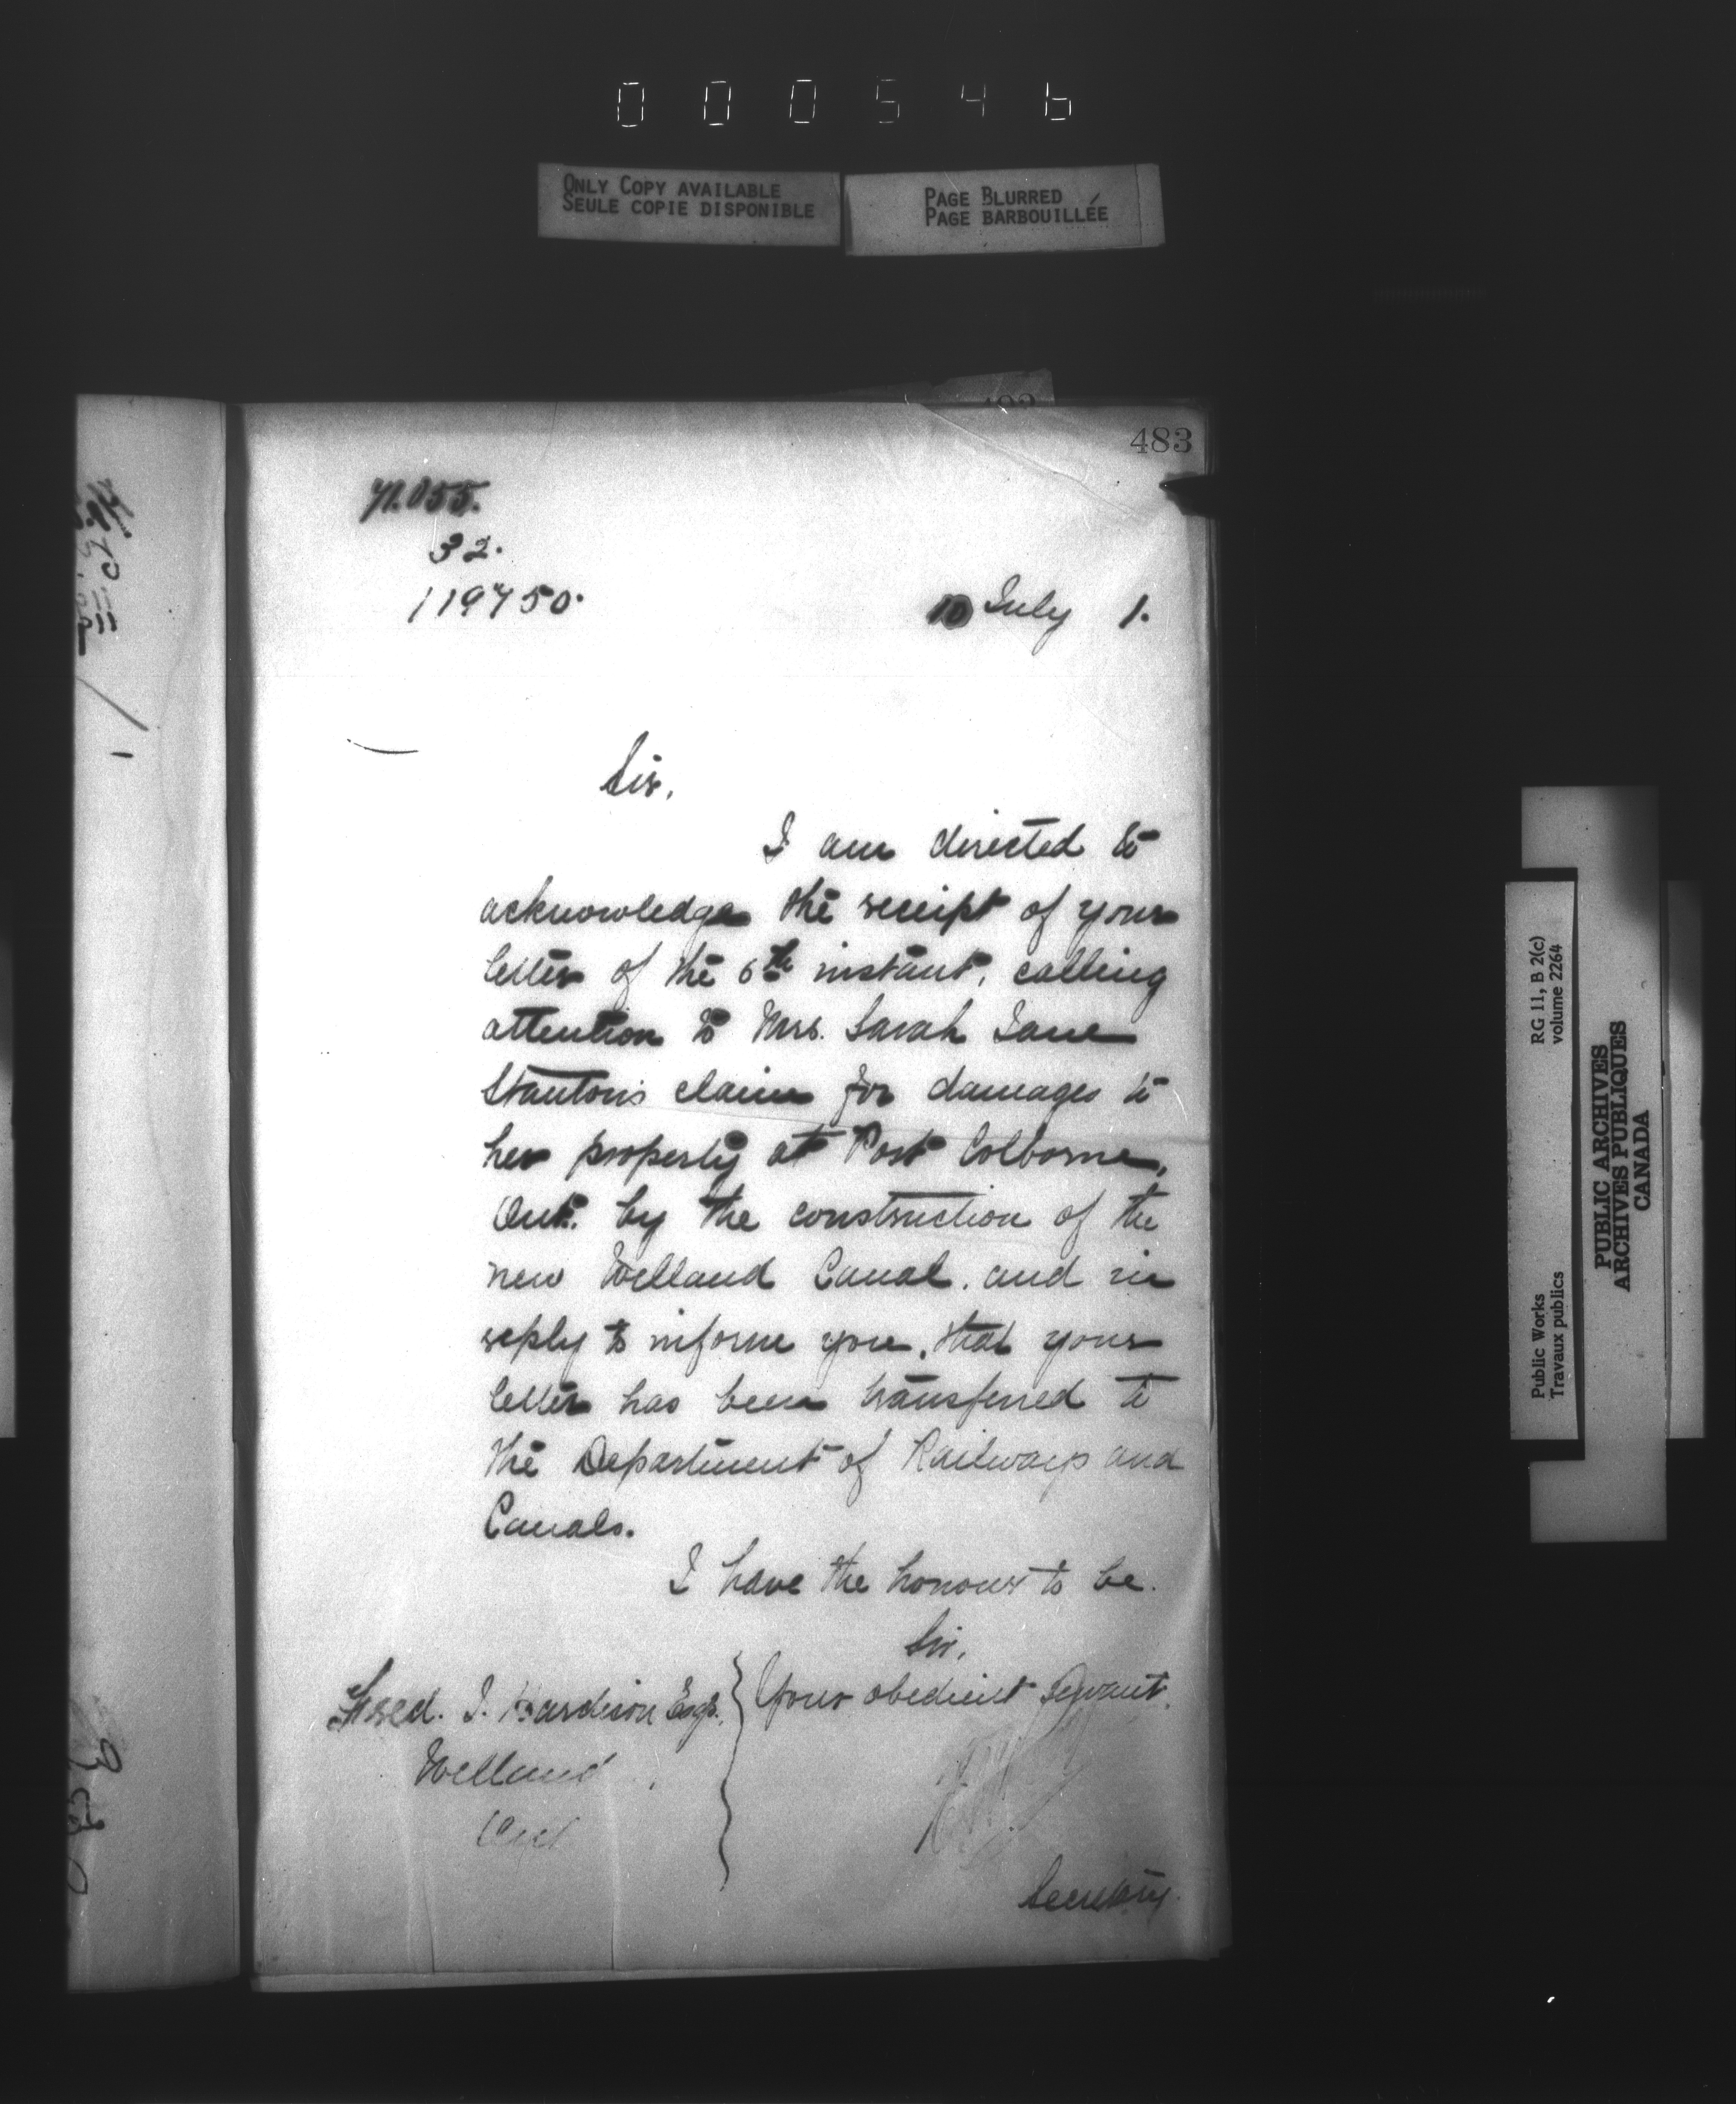 000546
ONLY COPY AVAILABLE
SEULE COPIE DISPONIBLE
PAGE BLURRED
PAGE BARBOUILLÉE
483
71.055.
32.
119750.
10 July 1.
Sir,
I am directed to
acknowledge the receipt of your
letter of the 6th instant, calling
attention to Mrs. Sarah Jane
Stanton's claim for damages to
her property at Port Colborne,
Ont. by the construction of the
new Welland Canal, and in
reply to inform you, that your
letter has been transferred to
the Department of Railways and
Canals.
I have the honour to be.
Sir,
Your obedient servant.
Fred. J. Esq.
Welland
Ont
Secretary.
RG 11, B 2(c)
volume 2264
Public Works
Travaux publics
PUBLIC ARCHIVES
ARCHIVES PUBLIQUES
CANADA